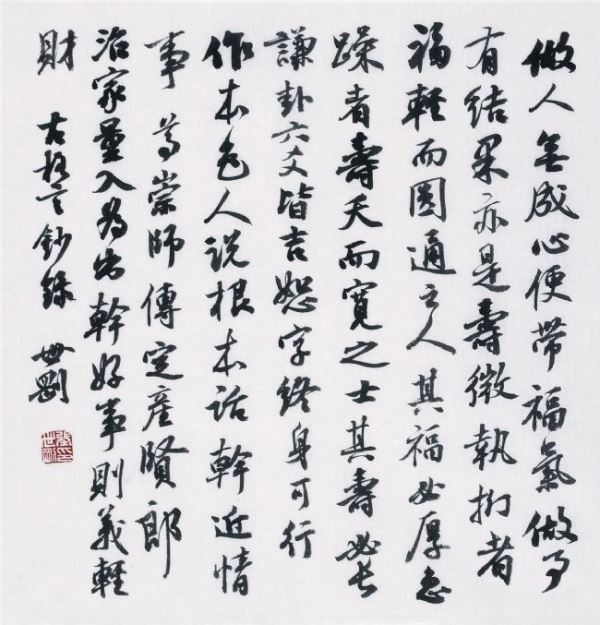 做人無成心便帶福氣做事
有結果亦是壽徵執拗者
福輕而圓通之人其福必厚急
躁者壽夭而寬之士其壽必長
謙卦六爻皆吉恕字終身可行
作本色人說根本話幹近情
事尊崇師傅定產賢郎
治家量入為出幹好事則義輕
財 古格言鈔錄 世剛